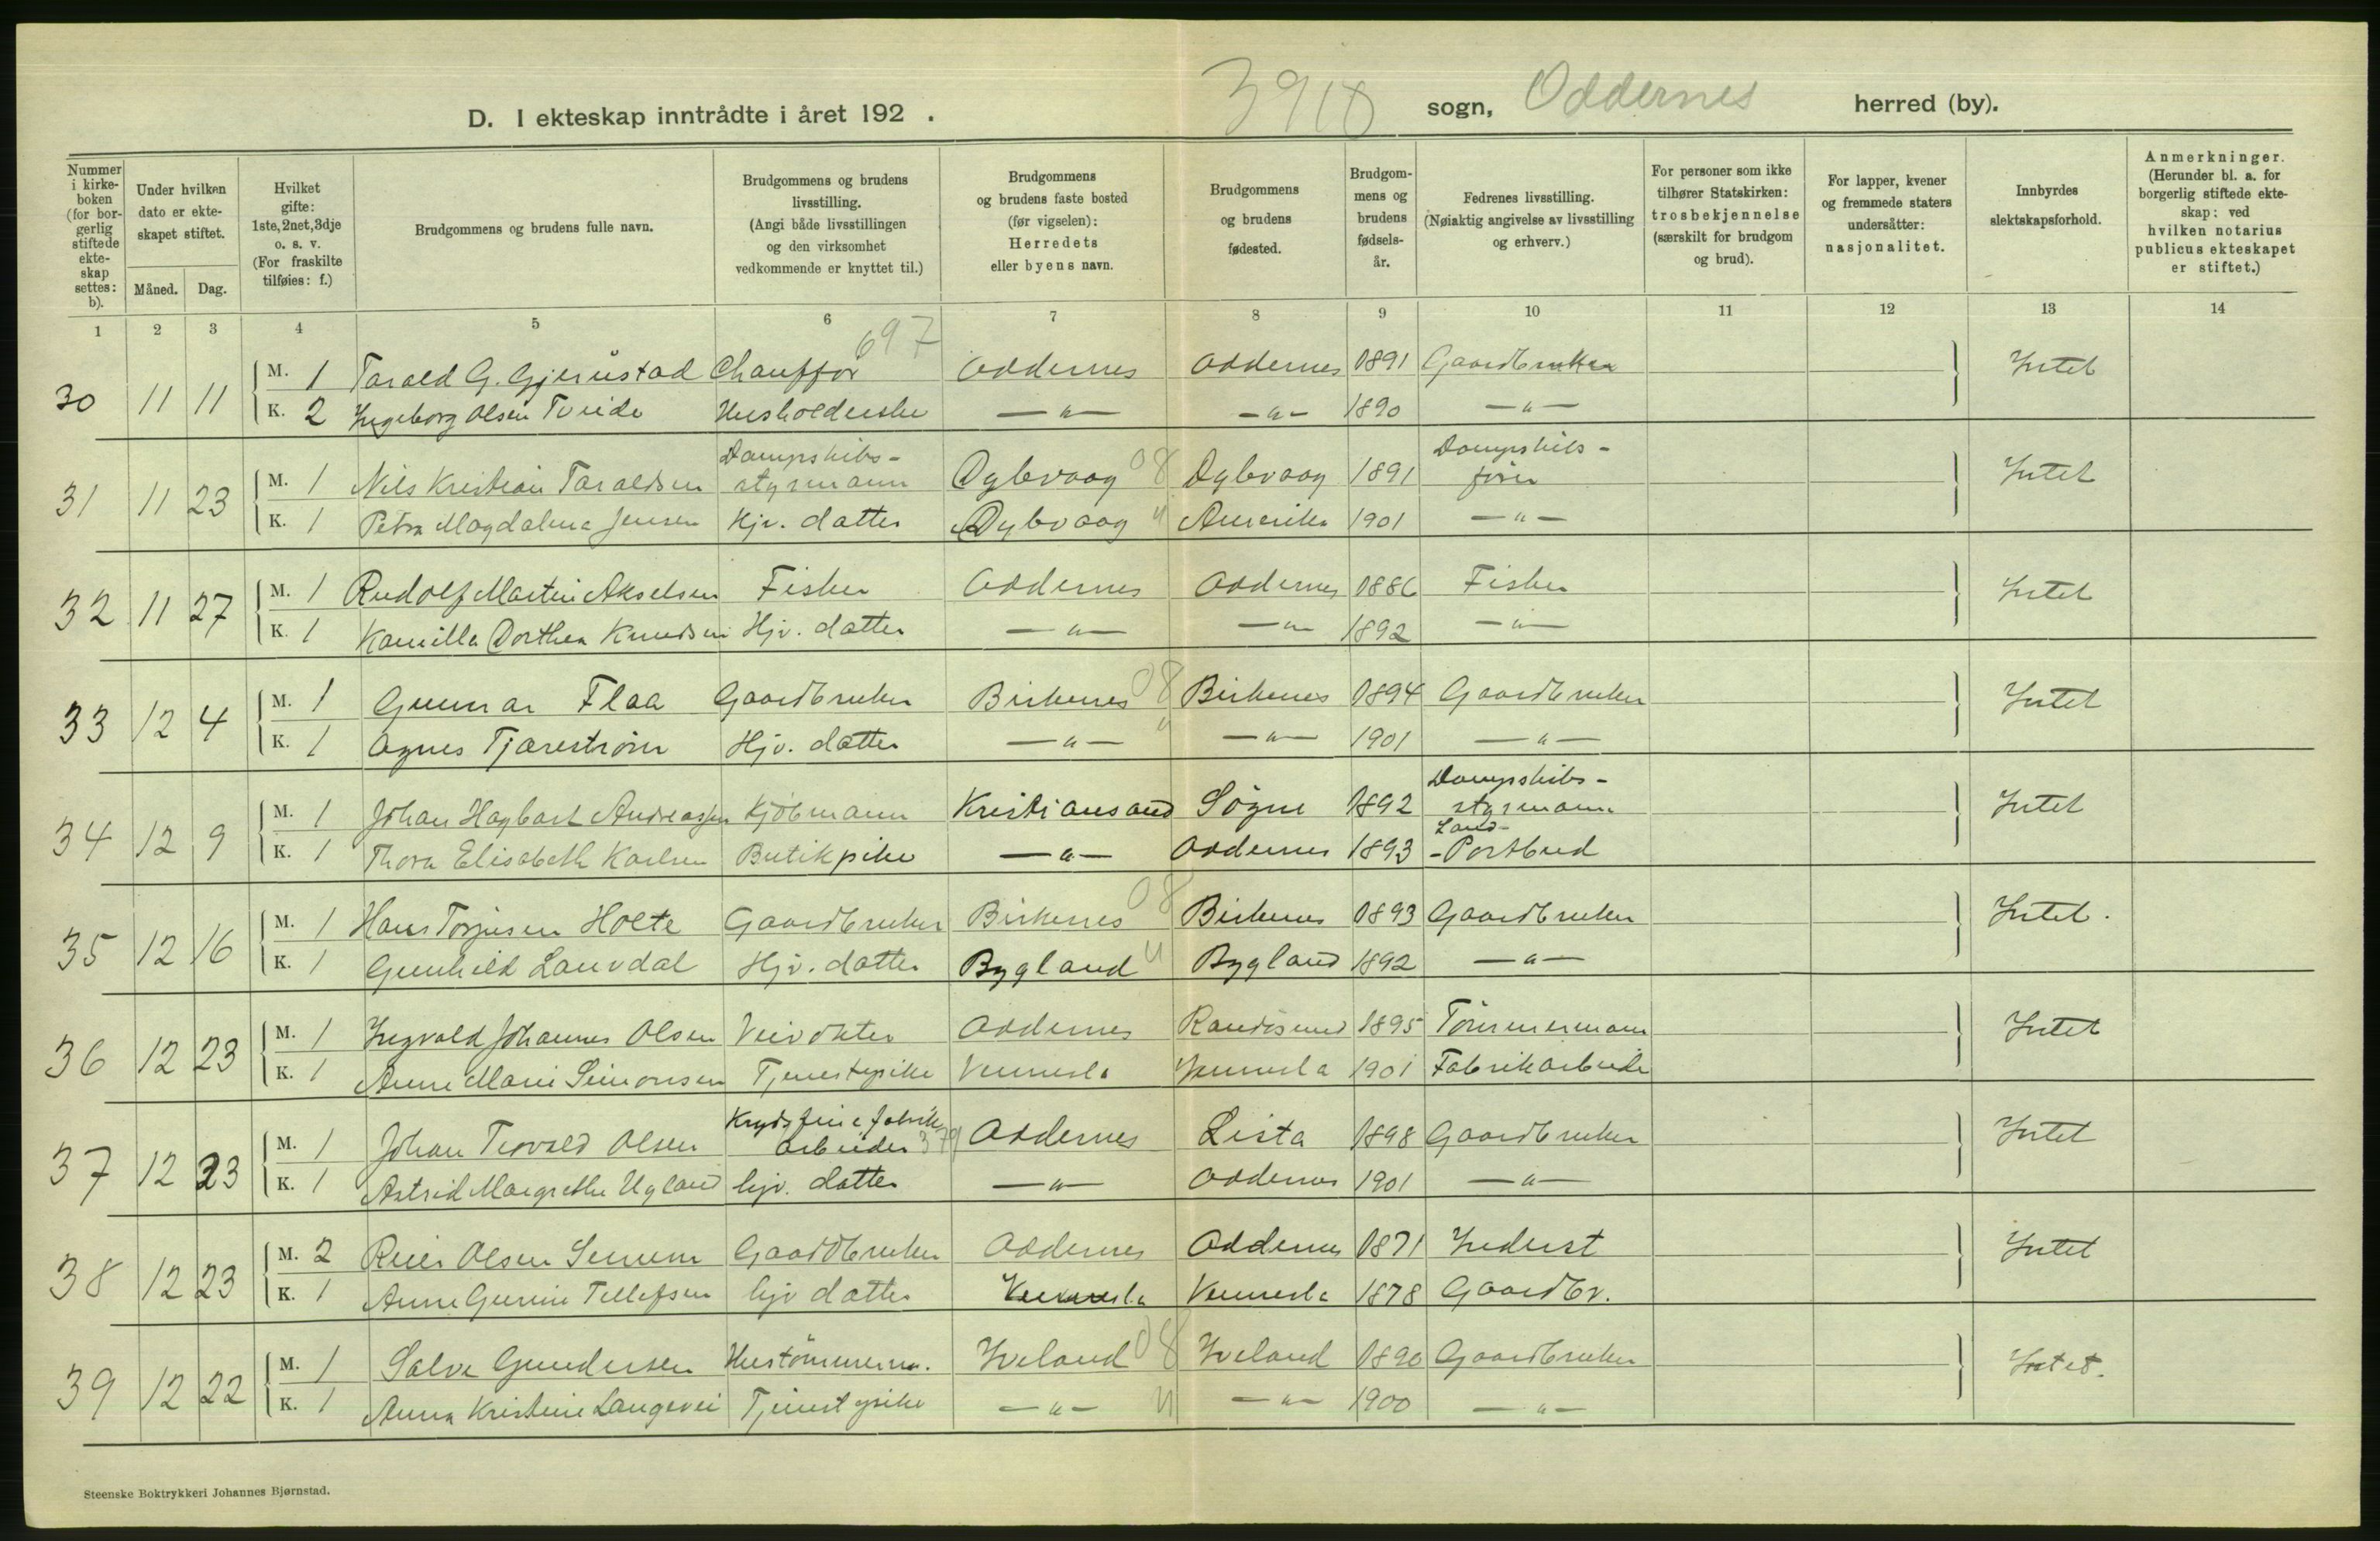 D. I ekteskap inntrådte i året 192 . 3918 sogn, Oddernes herred (by).
Nummer i kirke-boken (for bor-gerlig stiftede ekte-skap settes: b).
Under hvilken dato er ekte-skapet stiftet.
Måned. Dag.
Hvilket gifte: 1ste, 2net, 3dje o. s. v. (For fraskilte tilføies: f.)
Brudgommens og brudens fulle navn.
Brudgommens og brudens livsstilling. (Angi både livsstillingen og den virksomhet vedkommende er knyttet til.)
Brudgommens og brudens faste bosted (før vigselen): Herredets eller byens navn.
Brudgommens og brudens fødested.
Brudgom-mens og brudens fødsels-år.
Fedrenes livsstilling. (Nøiaktig angivelse av livsstilling og erhverv.)
For personer som ikke tilhører Statskirken: trosbekjennelse (særskilt for brudgom og brud).
For lapper, kvener og fremmede staters undersåtter: nasjonalitet.
Innbyrdes slektskapsforhold.
Anmerkninger. (Herunder bl. a. for borgerlig stiftede ekte-skap: ved hvilken notarius publicus ekteskapet er stiftet.)
1 2 3 4 5 6 7 8 9 10 11 12 13 14
697
30 11 11 M. 1 Tarald G. Gjerustad Chauffør Oddernes Oddernes 1891 Gaardbruker Intet
K. 2 Ingeborg Olsen Tveide Husholderske —"— —"— 1890 —"—
31 11 23 M. 1 Nils Kristian Taraldsen Dampskibs-styrmann Dybvaag 08 Dybvaag 1891 Dampskibs-fører Intet
K. 1 Petra Magdalena Jensen Hjv. datter Dybvaag " Amerika 1901 —"—
32 11 27 M. 1 Rudolf Martin Akselsen Fisker Oddernes Oddernes 1886 Fisker Intet
K. 1 Kamilla Dorthea Knudsen Hjv. datter —"— —"— 1892 —"—
33 12 4 M. 1 Gunnar Flaa Gaardbruker Birkenes 08 Birkenes 1894 Gaardbruker Intet
K. 1 Agnes Tjærestrøm Hjv. datter —"— " —"— 1901 —"—
34 12 9 M. 1 Johan Hagbart Andreassen Kjøbmann Kristiansand Søgne 1892 Dampskibs-styrmann Intet
K. 1 Thora Elisabeth Karlsen Butikpike —"— Oddernes 1893 Land-Postbud
35 12 16 M. 1 Hans Torjusen Holte Gaardbruker Birkenes 08 Birkenes 1893 Gaardbruker Intet.
K. 1 Gunhild Lauvdal Hjv. datter Bygland " Bygland 1892 —"—
36 12 23 M. 1 Ingvald Johannes Olsen Veivokter Oddernes Randøsund 1895 Tømmermann Intet
K. 1 Anne Marie Simonsen Tjenestepike Vennesla Vennesla 1901 Fabrikarbeider
37 12 23 M. 1 Johan Teovald Olsen Krydsfinerfabrik arbeider 379 Oddernes Lista 1898 Gaardbruker Intet
K. 1 Astrid Margrethe Ugland hjv. datter —"— Oddernes 1901 —"—
38 12 23 M. 2 Reier Olsen Gaardbruker Oddernes Oddernes 1871 Inderst Intet
K. 1 Anne Gurine Tellefsen hjv datter Vennesla Vennesla 1878 Gaardbr.
39 12 22 M. 1 Salve Gundersen Hustømmerm. Iveland 08 Iveland 1890 Gaardbruker Intet.
K. 1 Anna Kristine Langevei Tjenestepike —"— " —"— 1900 —"—
Steenske Boktrykkeri Johannes Bjørnstad.